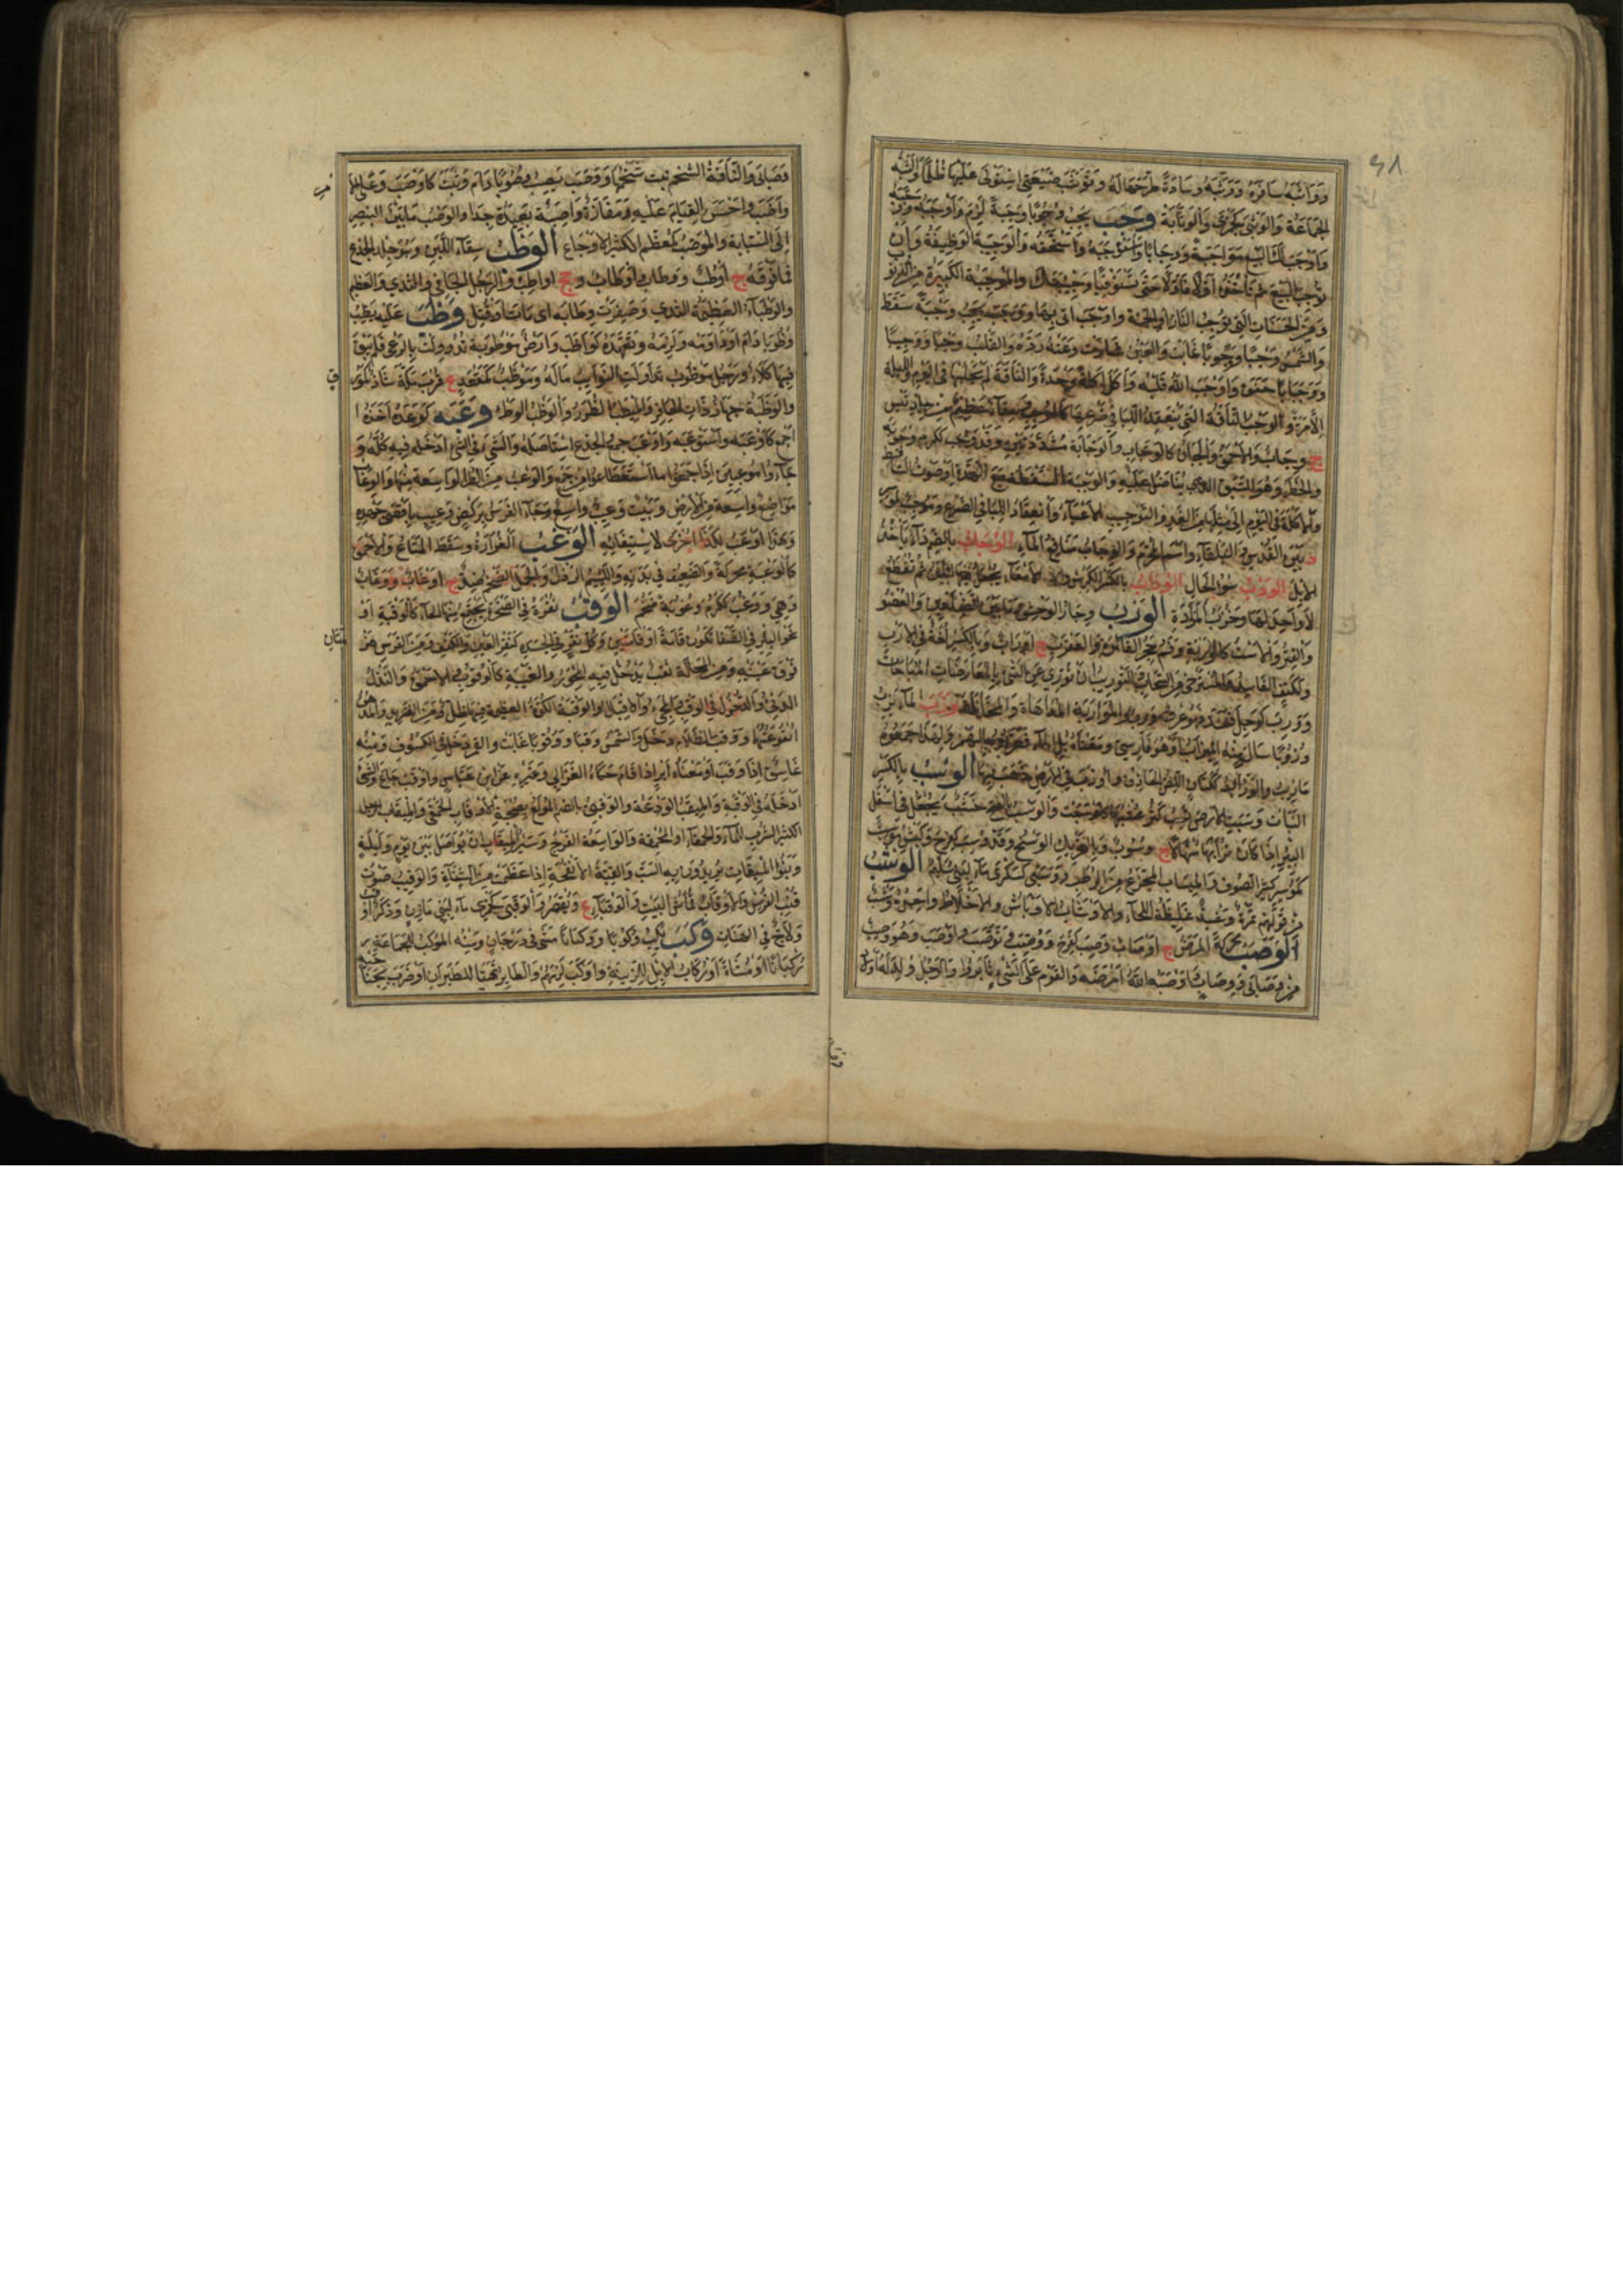 ٤٨
وواثبه ساوره ووثبه وسادة طرحها له وتوثب في ضيعتي استولى عليها ظلما والثبة
الجماعة والوثبى كجمزى والوثابة وجب يجب وجوبا وجبة لزم وأوجبه ووجبه
وأوجب لك البيع مواجبة ووجابا واستوجبه واستحقه والوجيبة الوظيفة وأن
توجب البيع ثم تأخذه أولا فأولا حتى تستوفي وجيبتك والموجبة الكبيرة من الذنوب
ومن الحسنات التي توجب النار أو الجنة وأوجب أتى بها ووجب يجب وجبة سقط
والشمس وجبا ووجوبا غابت والعين غارت وعنه رده والقلب وجبا ووجيبا
ووجبانا خفق وأوجب الله قلبه وأكل أكلة واحدة والناقة لم تحلبها في اليوم والليلة
إلا مرة والوجب الناقة التي ينعقد اللبأ في ضرعها كالموجب وسقاء عظيم من جلد تيس
ج وجاب والأحمق والجبان كالوجاب والوجابة مشددتين وقد وجب ككرم وجوبة
والخطر وهو السبق الذي يناضل عليه والوجبة السقطة مع الهدة أو صوت الساقط
والأكلة في اليوم إلى مثلها من الغد والتوجيب الإعياء وانعقاد اللبأ في الضرع وموجب كموسر
د بين القدس والبلقاء واسم المحرم والوجاب مناقع الماء الوحاب بالضم داء يأخذ
الإبل الودب سوء الحال الوذاب بالكسر الكرش والأمعاء يجعل فيها اللبن ثم تقطع
لا واحد لها وخرب المزادة الورب وجار الوحش وما بين الضلعين والعضو
والفتر والاست كالوربة وفم جحر الفأر والعقرب ج أوراب وبالكسر لغة في الأرب
ولكتف الفاسد والمسترخي من السحاب والتوريب أن توري عن الشيء بالمعارضات المباحات
وورب كوجل فسد فهو عرق ورب والمواربة المداهاة والمخاتلة وزب الماء يزب
وزوبا سال ومنه الميزاب أو هو فارسي ومعناه بل الماء فعربوه بالهمز ولهذا جمعوه
مآزيب والوزاب ككتان اللص الحاذق وأوزب في الأرض ذهب فيها الوسب بالكسر
النبات وسبت الأرض تسب كثر عشبها كأوسبت والوسب بالفتح خشب يجعل في أسفل
البئر إذا كان ترابها منهالا ج وسوب وبالتحريك الوسخ وقد وسب كفرح وكبش موسب
كموسر كثير الصوف والميساب المجزع من الرطب ووسبى كسكرى ماء لبني سليم الوشب
من قولهم تمرة وشبة غليظة اللحاء والأوشاب الأوباش والأخلاط واحده وشب
الوصب محركة المرض ج أوصاب وصب كفرح ووصب وتوصب وأوصب وهو وصب
من وصابى ووصاب وأوصبه الله أمرضه والقوم على الشيء ثابروا والرجل ولد له أولاد
وصابى والناقة الشحم نبت شحمها ووصب يصب وصوبا دام وثبت كأوصب وعلى الأمر
واظب وأحسن القيام عليه ومفازة واصبة بعيدة جدا والوصب ما بين البنصر
إلى السبابة والموصب كمعظم الكثير الأوجاع الوطب سقاء اللبن وهو جلد الجذع
فما فوقه ج أوطب ووطاب وأوطاب وجج أواطب والرجل الجافي والثدي العظيم
والوطباء العظيمة الثدي وصفرت وطابه أي مات أو قتل وظب عليه يظب
وظوبا دام أو داومه ولزمه وتعهده كواظب وأرض موظوبة تدوولت بالرعي فلم يبق
فيها كلأ ورجل موظوب تداولت النوائب ماله وموظب كمقعد ع قرب مكة شاذ كمورق
والوظبة جهاز ذات الحافر والميظب الظرر والوظب الوطء وعبه كوعده أخذه أ
أجمع كأوعبه واستوعبه وأوعب جمع والجذع استأصله والشيء في الشيء أدخله فيه كله و
جاءوا موعبين إذا جمعوا ما استطاعوا من جمع والوعب من الطرق الواسعة منها والوعاب
مواضع واسعة من الأرض وبيت وعيب واسع وجاء الفرس بركض وعيب بأقصى جهده
وهذا أوعب لكذا أحرى لاستيفائه الوغب الغرارة وسقط المتاع والأحمق
كالوغبة محركة والضعيف في بدنه واللئيم الرذل والجمل الضخم ضد ج أوغاب ووغاب
وهي وغبة ككرم وغوبة ضخم الوقب نقرة في الصخرة يجتمع فيها الماء كالوقبة أو
نحو البئر في الصفا تكون قامة أو قامتين وكل نقر في الجسد كنقر العين والكتف ومن الفرس هزمتان
فوق عينيه ومن المحالة ثقب يدخل فيه المحور والغيبة كالوقوب والأحمق والنذل
الدنيء والدخول في الوقب والمجيء والإقبال والوقبة الكوة العظيمة فيها ظل ومن الثريد والدهن
أنقوعتها ووقب الظلام دخل والشمس وقبا ووقوبا غابت والقمر دخل في الكسوف ومنه
غاسق إذا وقب أو معناه أير إذا قام حكاه الغزالي وغيره عن ابن عباس وأوقب جاع والشيء
أدخله في الوقبة والميقب الودعة والوقبي بالضم المولع بصحبة الأوقاب الحمقى والميقاب الرجل
الكثير الشرب للماء والحمقاء أو المحمقة والواسعة الفرج وسير الميقاب أن تواصل بين يوم وليلة
وبنو الميقاب يريدون به السب والقبة الإنفحة إذا عظمت من الشاة والوقيب صوت
قنب الفرس والأوقاب قماش البيت والوقباء ع ويقصر والوقبى كجمزى ماء لبني مازن وذكر أوقب
ولاج في الهنات وكب يكب وكوبا ووكبانا مشى في درجان ومنه الموكب للجماعة
ركبانا أو مشاة أو ركاب الإبل للزينة وأوكب لزمهم والطائر تهيأ للطيران أو ضرب بجناحيه